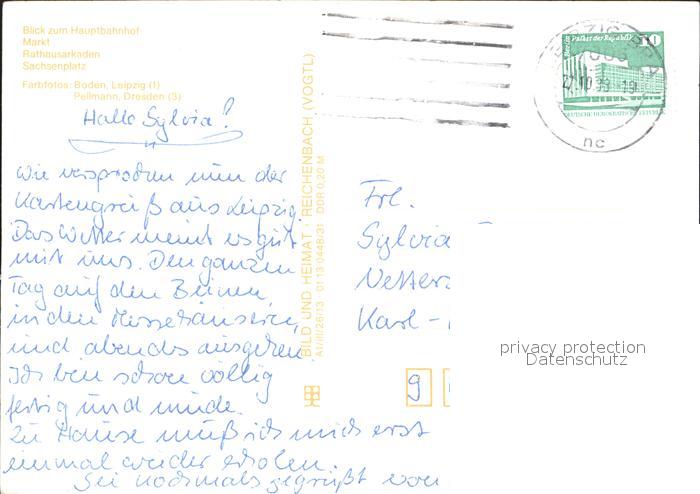 Blick zum Hauptbahnhof
Markt
Rathausarkaden
Sachsenplatz
Farbfotos: Boden, Leipzig (1)
Pellmann, Dresden (3)
Hallo Sylvia!
Wie versprochen nun der
Kartengruß aus Leipzig.
Das Wetter meint es gut
mit uns. Den ganzen
Tag auf den Beinen,
in den Messehäusern,
und abends ausgehen.
Ich bin schon völlig
fertig und müde.
Zu Hause muß ich mich erst
einmal wieder erholen.
Sei nochmals gegrüßt von
BILD UND HEIMAT · REICHENBACH (VOGTL)
A1/III/26/13 01 13 0448/31 DDR 0,20 M
Palast der Republik
10
DEUTSCHE DEMOKRATISCHE REPUBLIK
nc
Frl.
Sylvia
Karl-
9
privacy protection
Datenschutz